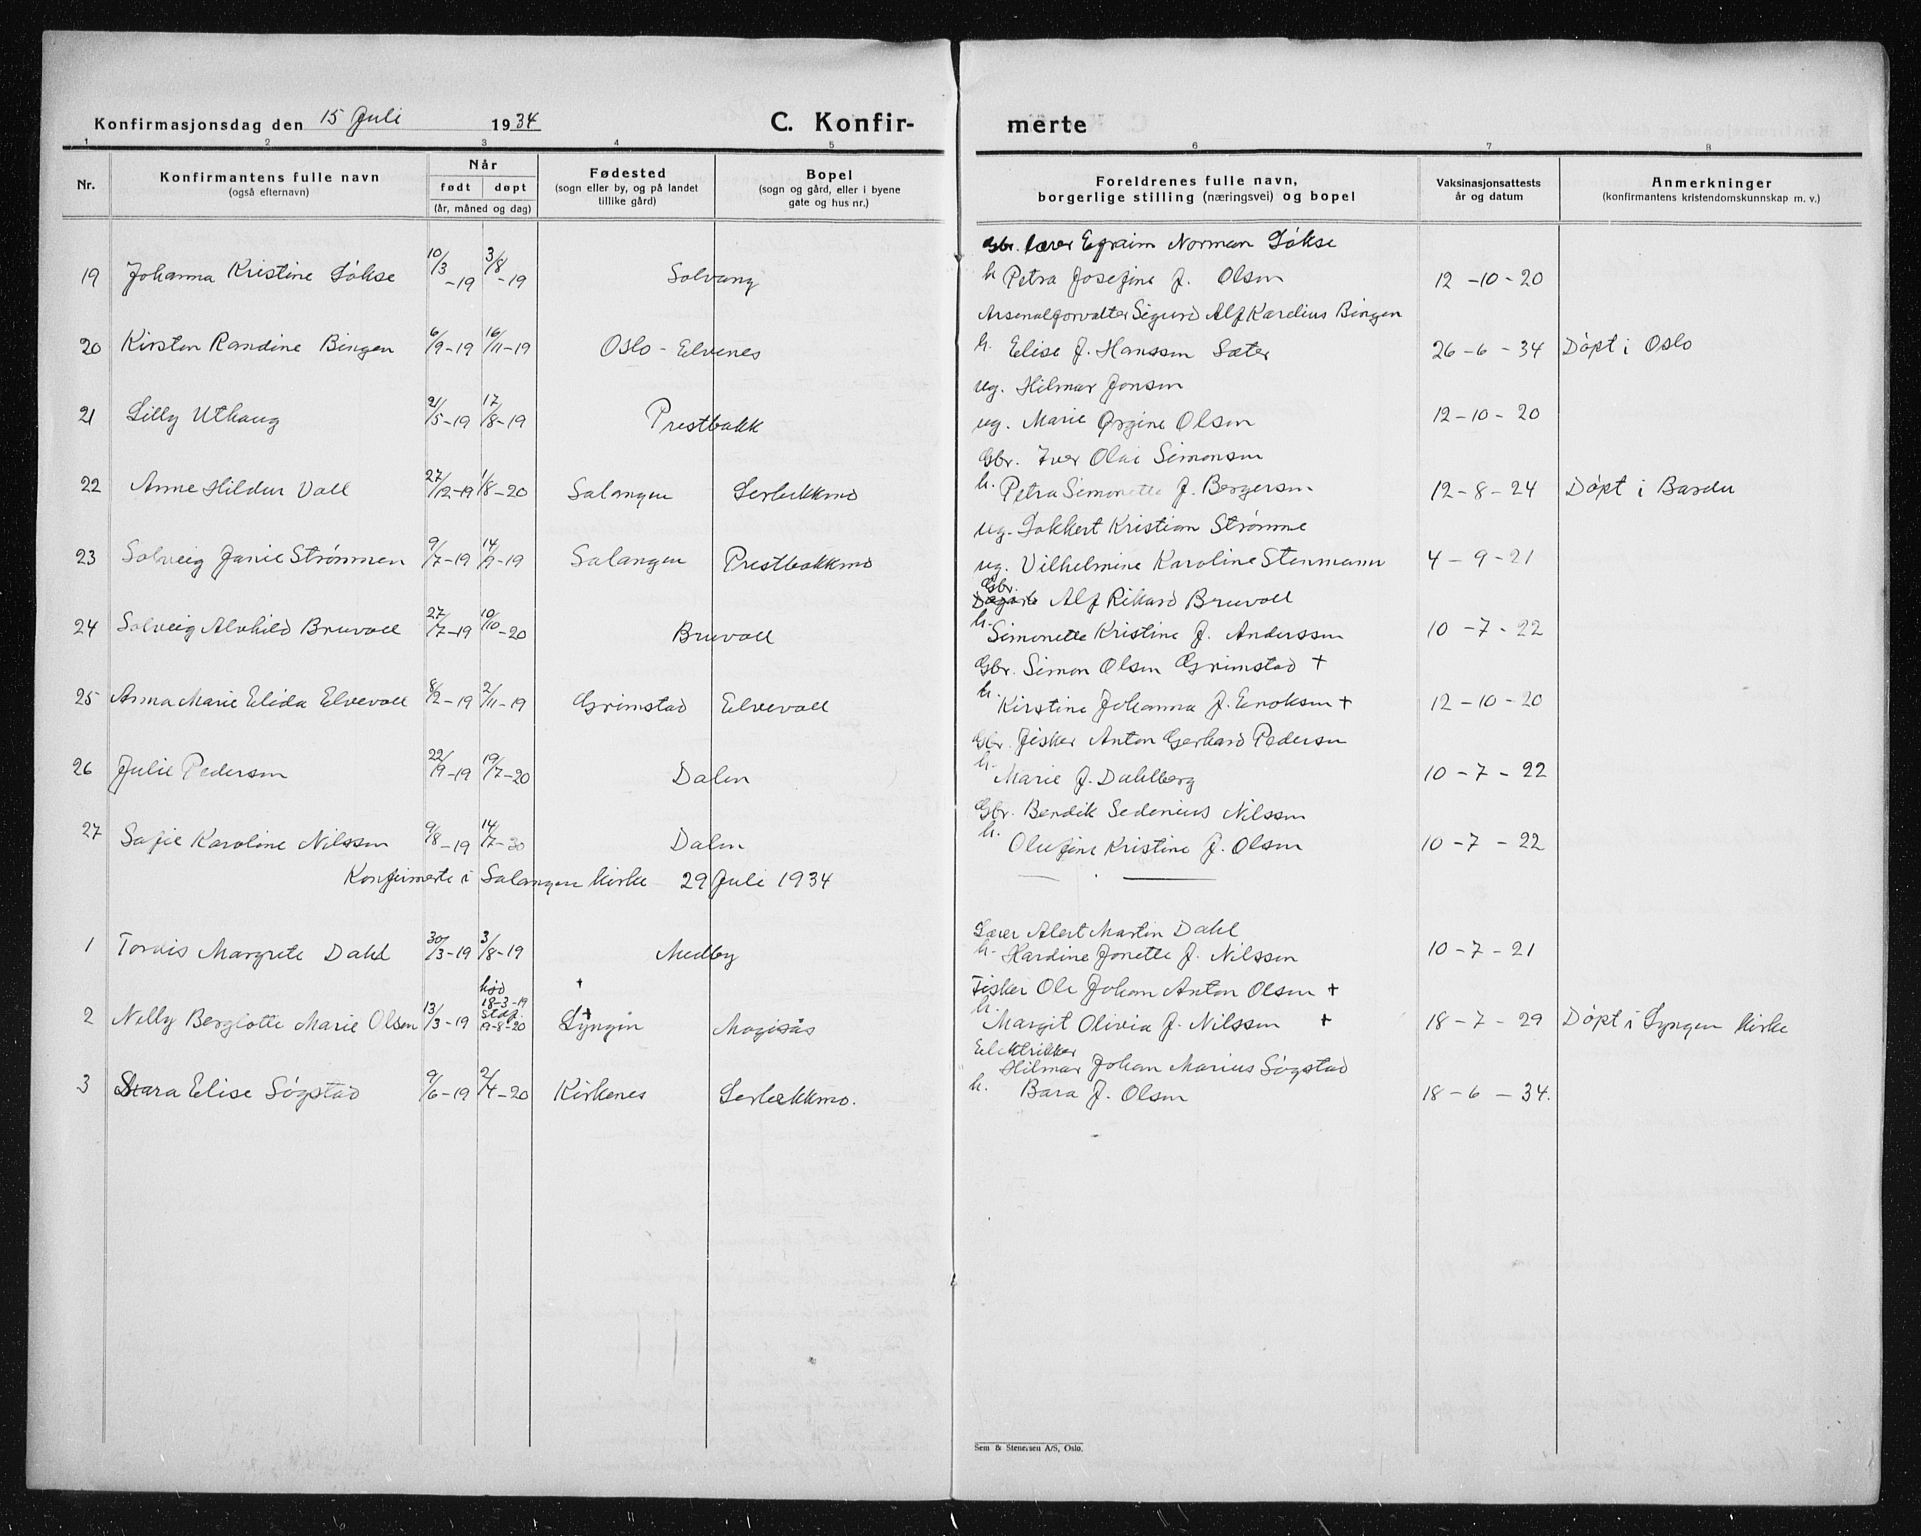 Konfirmasjonsdag den 15 Juli 1934 C. Konfir- merte
1 2 3 4 5 6 7 8
Nr. Konfirmantens fulle navn (også efternavn) Når født døpt (år, måned og dag) Fødested (sogn eller by, og på landet tillike gård) Bopel (sogn og gård, eller i byene gate og hus nr.) Foreldrenes fulle navn, borgerlige stilling (næringsvei) og bopel Vaksinasjonsattests år og datum Anmerkninger (konfirmantens kristendomskunnskap m. v.)
Gbr. lærer Efraim Norman Løkse
19 Johanna Kristine Løkse 10/3-19 3/8-19 Solvang h Petra Josefine f. Olsen 12-10-20
Arsenalforvalter Sigurd Alf Karelius Bingen
20 Kirsten Randine Bingen 6/9-19 16/11-19 Oslo - Elvenes h. Elise f. Hanssen Sæter 26-6-34 Døpt i Oslo
ug. Hilmar Jonsen
21 Lilly Uthaug 21/5-19 17/8-19 Prestbakk ug. Marie Ørgine Olsen 12-10-20
Gbr. Iver Olai Simonsen
22 Anne Hildur Voll 27/12-19 1/8-20 Salangen Lerbekkmo h. Petra Simonette f. Bergersen 12-8-24 Døpt i Bardu
ug. Lokkert Kristian Strømme
23 Solveig Janie Strømmen 9/7-19 14/9-19 Salangen Prestbakkmo ug. Vilhelmine Karoline Stenmann 4-9-21
Gbr. Alf Rikard Bruvoll
24 Solveig Alvhild Bruvoll 27/7-19 10/10-20 Bruvoll h. Simonette Kristine f. Anderssen 10-7-22
Gbr. Simon Olsen Grimstad +
25 Anna Marie Elida Elvevoll 8/2-19 2/11-19 Grimstad Elvevoll h. Kirstine Johanna f. Enoksen + 12-10-20
Gbr. fisker Anton Gerhard Pedersen
26 Julie Pedersen 22/9-19 19/7-20 Dalen h. Marie f. Dahlberg 10-7-22
Gbr. Bendik Sedenius Nilssen
27 Sofie Karoline Nilssen 9/8-19 14/7-20 Dalen h. Olufine Kristine f. Olsen 10-7-22
Konfirmerte i Salangen kirke 29 Juli 1934
Lærer Alert Martin Dahl
1 Tordis Margrete Dahl 30/3-19 3/8-19 Medby h. Hardine Jonette f. Nilssen 10-7-21
Fisker Ole Johan Anton Olsen +
2 Nelly Berglotte Marie Olsen 13/3-19 hjd 18-3-19 stadf. 19-8-20 Lyngen Mogisås h. Margit Olivia f. Nilssen + 18-7-29 Døpt i Lyngen kirke
Elektrikker
Hilmar Johan Marius Søgstad
3 Sara Elise Søgstad 9/6-19 2/4-20 Kirkenes Lerbekkmo. h. Bara f. Olsen 18-6-34.
Sem & Stenersen A/S, Oslo.